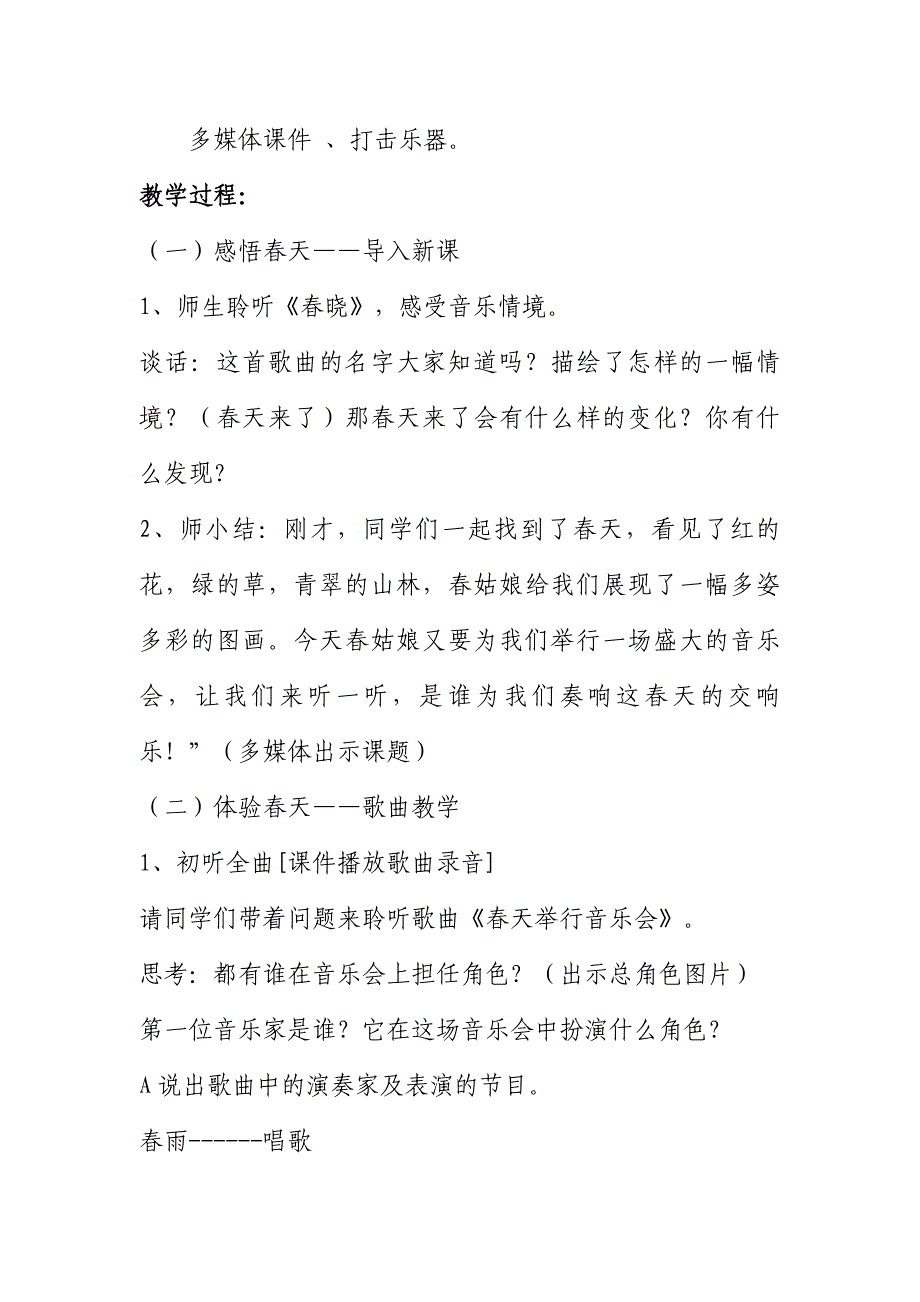 多媒体课件 、打击乐器。
教学过程：
（一）感悟春天——导入新课
1、师生聆听《春晓》，感受音乐情境。
谈话：这首歌曲的名字大家知道吗？描绘了怎样的一幅情
境？（春天来了）那春天来了会有什么样的变化？你有什
么发现？
2、师小结：刚才，同学们一起找到了春天，看见了红的
花，绿的草，青翠的山林，春姑娘给我们展现了一幅多姿
多彩的图画。今天春姑娘又要为我们举行一场盛大的音乐
会，让我们来听一听，是谁为我们奏响这春天的交响
乐！”（多媒体出示课题）
（二）体验春天——歌曲教学
1、初听全曲[课件播放歌曲录音]
请同学们带着问题来聆听歌曲《春天举行音乐会》。
思考：都有谁在音乐会上担任角色？（出示总角色图片）
第一位音乐家是谁？它在这场音乐会中扮演什么角色？
A 说出歌曲中的演奏家及表演的节目。
春雨------唱歌